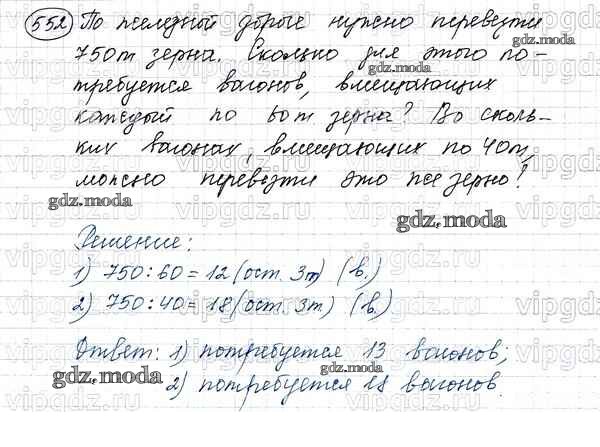 552 По железной дороге нужно перевезти
750т зерна. Сколько для этого по-
требуется вагонов, вмещающих
каждый по 60т зерна? Во сколь-
ких вагонах, вмещающих по 40т,
можно перевезти это же зерно?
Решение:
1) 750:60=12(ост. 3т) (в.)
2) 750:40=18(ост. 3т.) (в.)
Ответ: 1) потребуется 13 вагонов;
2) потребуется вагонов.
gdz.moda
gdz.moda
gdz.moda
gdz.moda
gdz.moda
gdz.moda
gdz.moda
vipgdz.ru